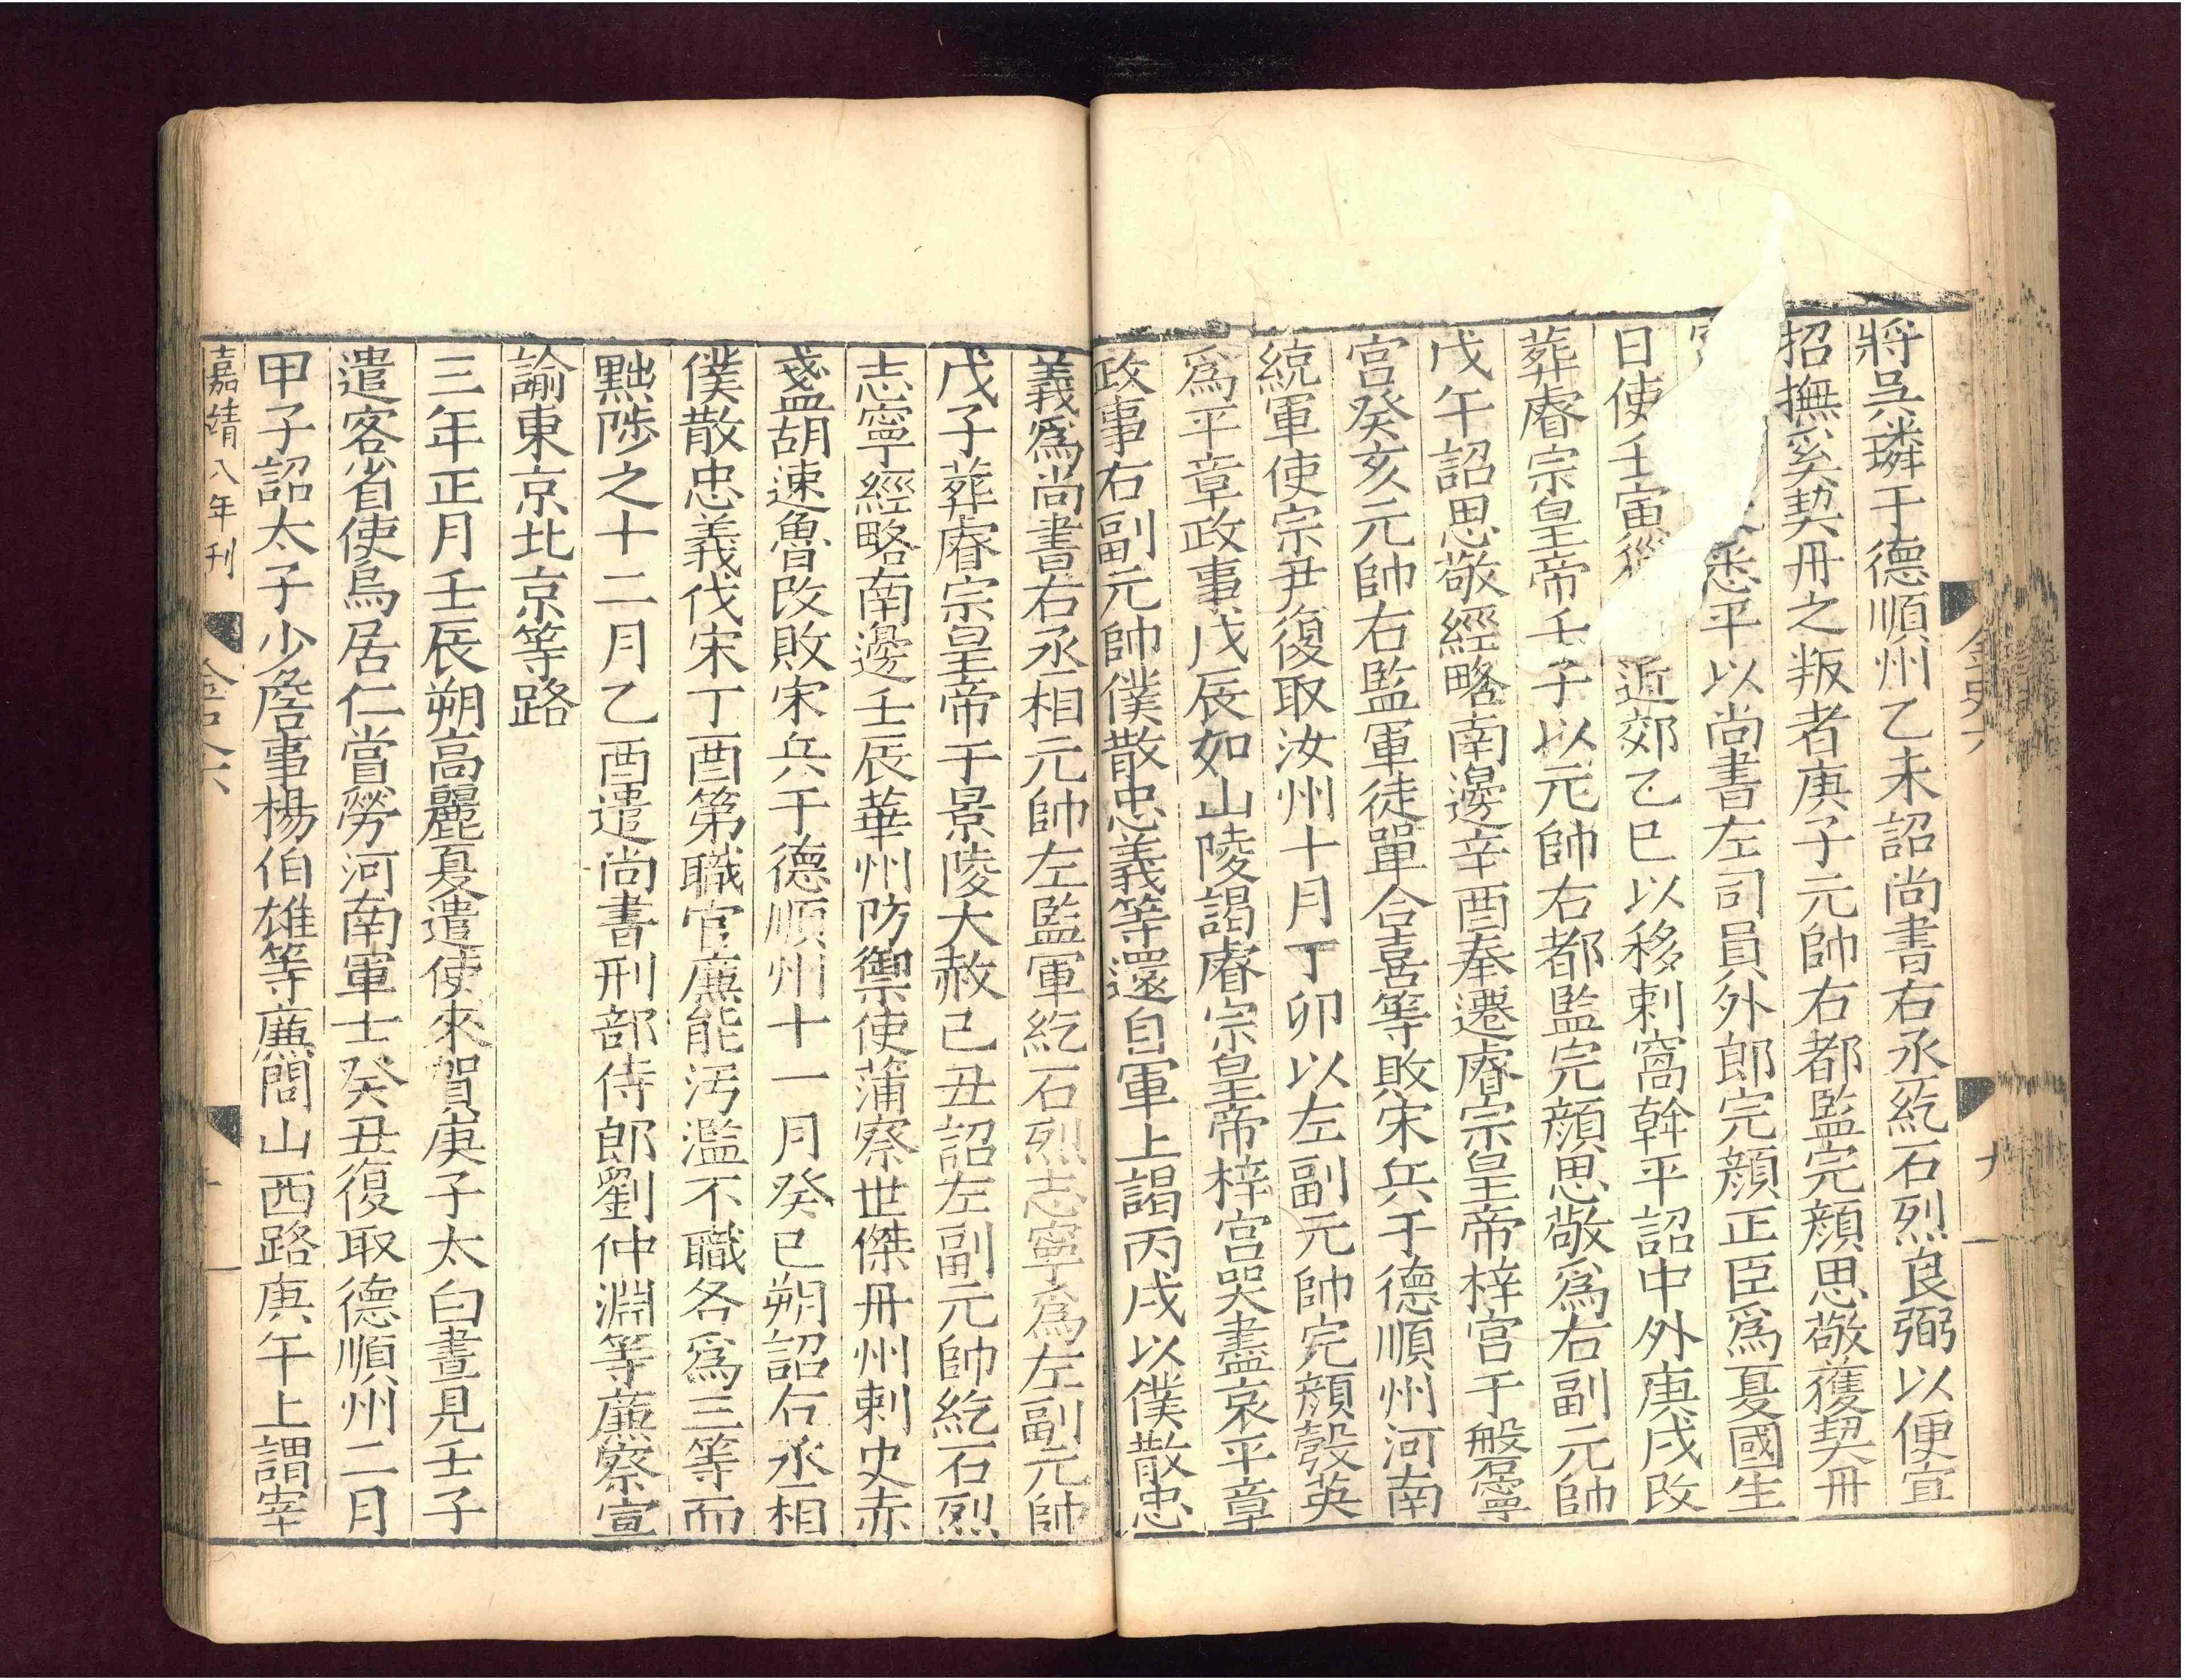 金史六
九
將吳璘于德順州乙未詔尚書右丞紇石烈良弼以便宜
招撫奚契丹之叛者庚子元帥右都監完顏思敬獲契丹
悉平以尚書左司員外郎完顏正臣爲夏國生
日使壬寅近郊乙巳以移剌窩斡平詔中外庚戌改
葬睿宗皇帝壬子以元帥右都監完顏思敬爲右副元帥
戊午詔思敬經略南邊辛酉奉遷睿宗皇帝梓宮于磐寧
宮癸亥元帥右監軍徒單合喜等敗宋兵于德順州河南
統軍使宗尹復取汝州十月丁卯以左副元帥完顏㝅英
爲平章政事戊辰如山陵謁睿宗皇帝梓宮哭盡哀平章
政事右副元帥僕散忠義等還自軍上謁丙戌以僕散忠
義爲尚書右丞相元帥左監軍紇石烈志寧爲左副元帥
戊子葬睿宗皇帝于景陵大赦己丑詔左副元帥紇石烈
志寧經略南邊壬辰華州防禦使蒲察世傑丹州刺史赤
盞胡速魯改敗宋兵于德順州十一月癸巳朔詔右丞相
僕散忠義伐宋丁酉第職官廉能污濫不職各爲三等而
黜陟之十二月乙酉遣尚書刑部侍郎劉仲淵等廉察宣
諭東京北京等路
三年正月壬辰朔高麗夏遣使來賀庚子太白晝見壬子
遣客省使烏居仁賞勞河南軍士癸丑復取德順州二月
甲子詔太子少詹事楊伯雄等廉問山西路庚午上謂宰
嘉靖八年刊